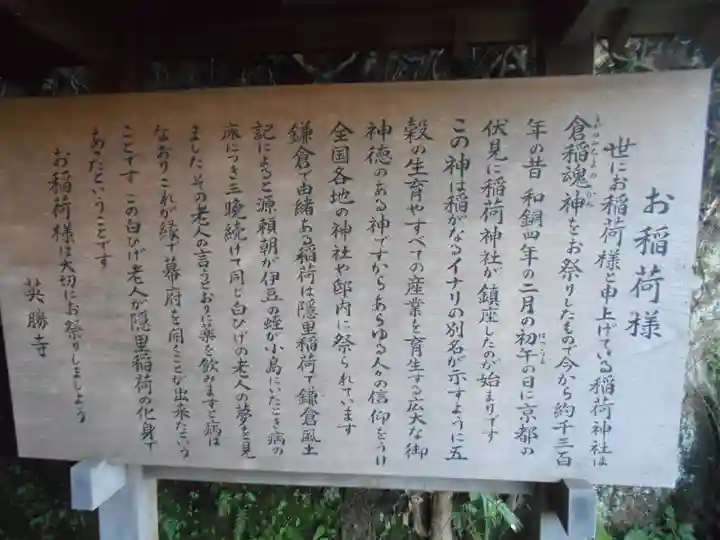 お稲荷様
世にお稲荷様と申上げている稲荷神社は
倉稲魂神をお祭りしたもので今から約千三百
年の昔 和銅四年の二月の初午の日に京都の
伏見に稲荷神社が鎮座したのが始まりです
この神は稲がなるイナリの別名が示すように五
穀の生育やすべての産業を育生する広大な御
神徳のある神ですからあらゆる人の信仰をうけ
全国各地の神社や邸内に祭られています
鎌倉で由緒ある稲荷は隠里稲荷で鎌倉風土
記によると源頼朝が伊豆の蛭が小島にいたとき病の
床につき三晩続けて同じ白ひげの老人の夢を見
ました その老人の言うとおりに薬を飲みますと病は
なおりこれが縁で幕府を開くことが出来たという
ことです この白ひげ老人が隠里稲荷の化身で
あったということです
お稲荷様は大切にお祭りしましょう
英勝寺